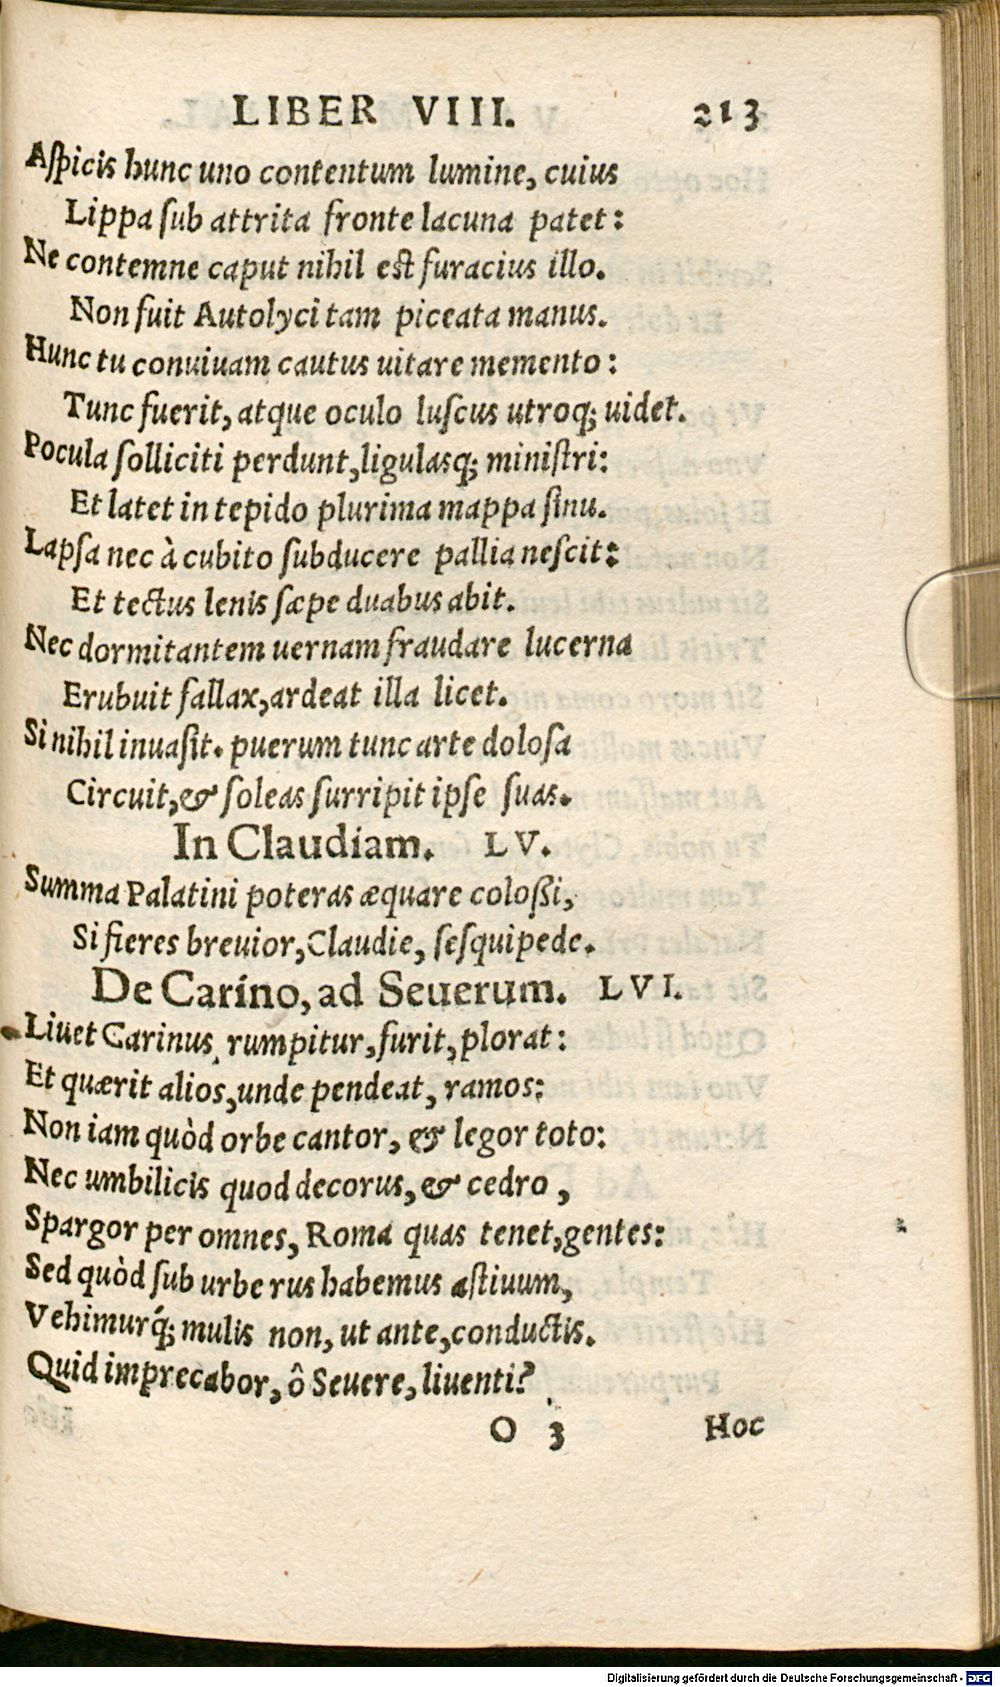 LIBER VIII. 213
Aſpicis hunc uno contentum lumine, cuius
Lippa ſub attrita fronte lacuna patet:
Ne contemne caput nihil eſt furacius illo.
Non fuit Autolyci tam piceata manus.
Hunc tu conuiuam cautus uitare memento:
Tunc fuerit, atque oculo luſcus utroq; uidet.
Pocula ſolliciti perdunt, ligulasq; miniſtri:
Et latet in tepido plurima mappa ſinu.
Lapſa nec à cubito ſubducere pallia neſcit:
Et tectus lenis ſæpe duabus abit.
Nec dormitantem uernam fraudare lucerna
Erubuit fallax, ardeat illa licet.
Si nihil inuaſit. puerum tunc arte doloſa
Circuit, & ſoleas ſurripit ipſe ſuas.
In Claudiam. LV.
Summa Palatini poteras æquare coloßi,
Si fieres breuior, Claudie, ſeſquipede.
De Carino, ad Seuerum. LVI.
Liuet Carinus, rumpitur, furit, plorat:
Et quærit alios, unde pendeat, ramos:
Non iam quòd orbe cantor, & legor toto:
Nec umbilicis quod decorus, & cedro,
Spargor per omnes, Roma quas tenet, gentes:
Sed quòd ſub urbe rus habemus æſtiuum,
Vehimurq́; mulis non, ut ante, conductis.
Quid imprecabor, ô Seuere, liuenti?
O 3 Hoc
Digitalisierung gefördert durch die Deutsche Forschungsgemeinschaft - DFG